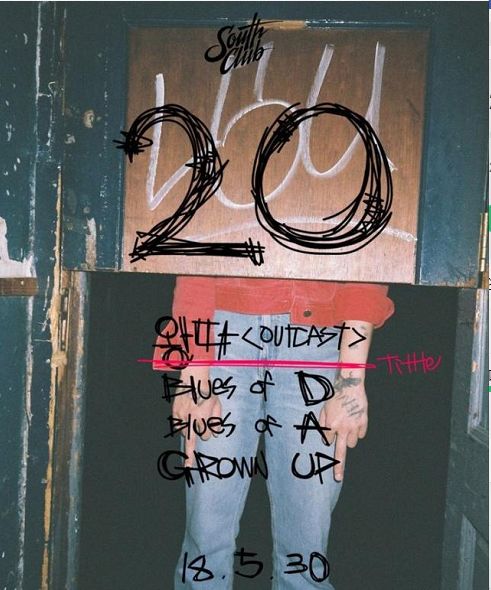 South
Club
20
왕따 <OUTCAST>
Tittle
BlUES OF D
BlUES OF A
GROWN UP
18.5.30